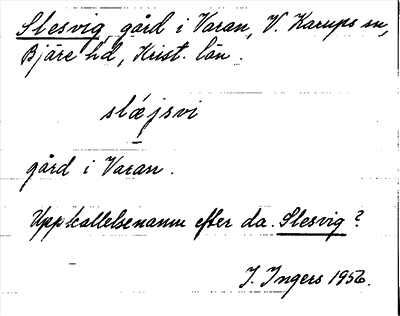 Slesvig, gård i Varan, V. Karups sn,
Bjäre hd, Krist. län.
slæjsvi
gård i Varan.
Uppkallelsenamn efter da. Slesvig?
I. Ingers 1956.